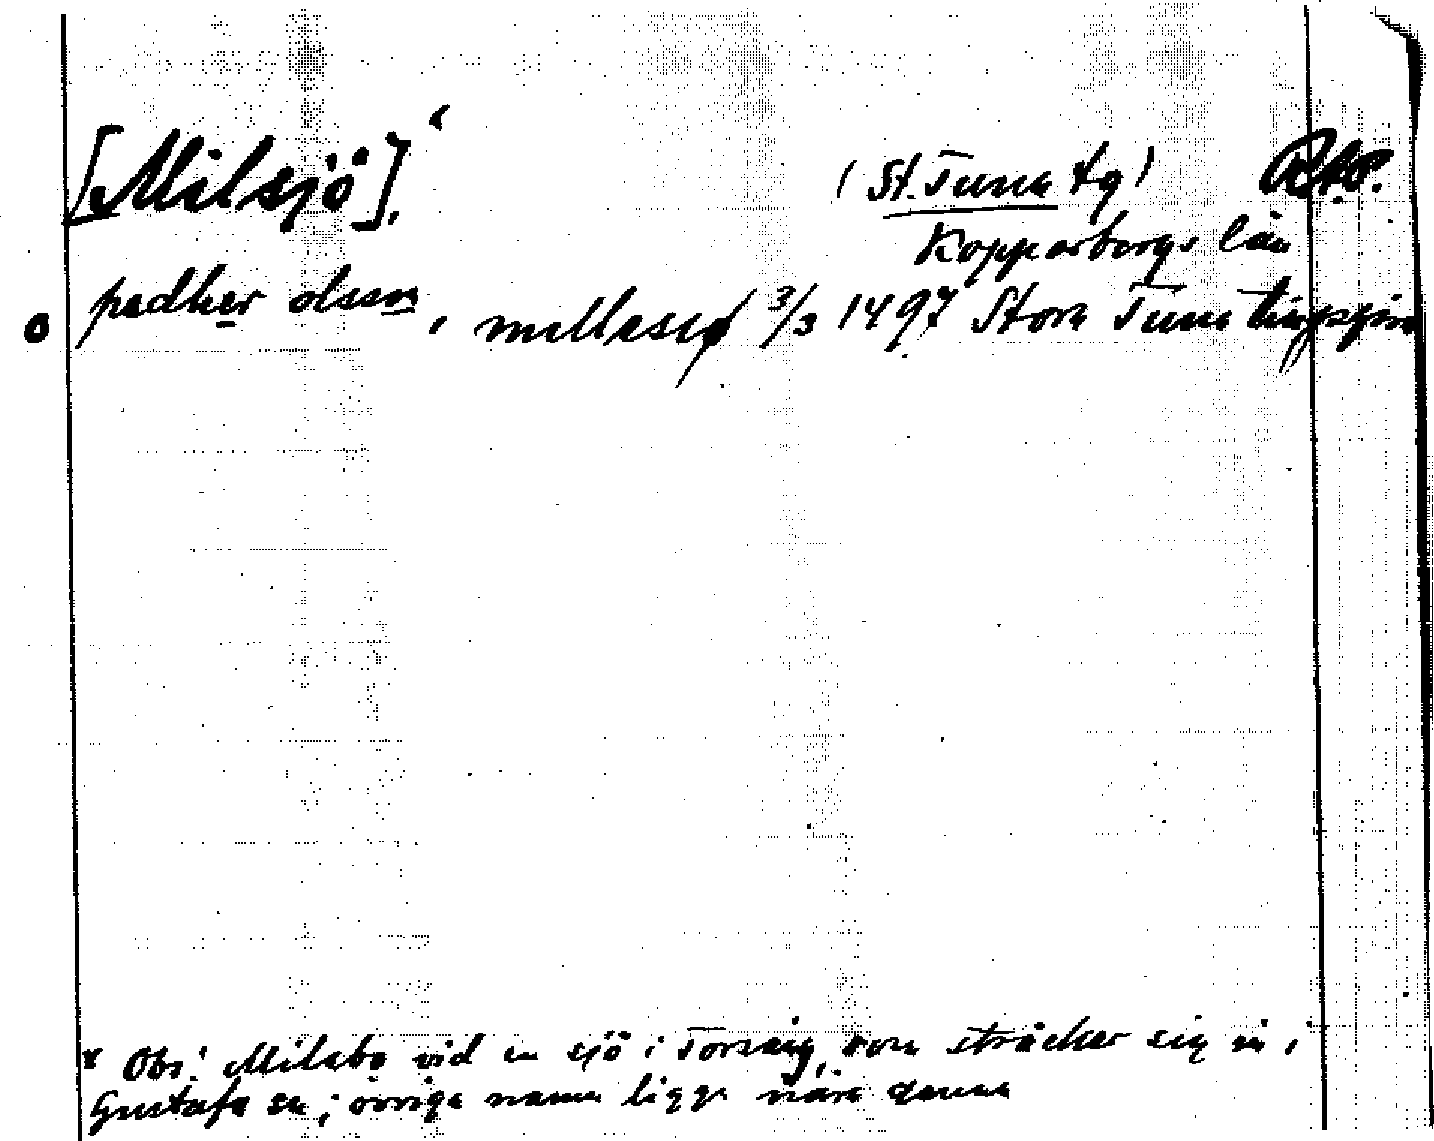 [Milsjö].
(St. Tuna tg)
Kopparbergs län
pedher olsson, millesiø 3/3 1497 Stora Tuna
* Obs! Milsbo vid en sjö i Torsång, som sträcker sig in i
Gustafs sn; övriga namn ligga nära denna